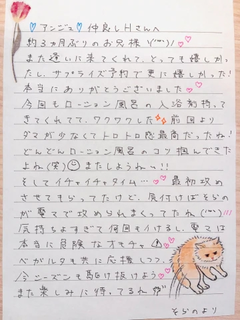 アンジュ 仲良しHさんへ
約3ヵ月ぶりのお兄様
また逢いに来てくれて、とっても嬉しかっ
たし、サプライズ予約で更に嬉しかった!
本当にありがとうございました
今回もローション風呂の入浴剤持っ
てきてくれてて、ワクワクした 前回より
ダマが少なくてトロトロ感最高だったね!
どんどんローション風呂のコツ掴んできた
よね(笑) またしようねっ!!
そしてイチャイチャタイム… 最初攻め
させてもらってたけど、気付けばそらの
が電マで攻められまくってたね
気持ちよすぎて何回もイケるし、電マは
本当に危険なオモチャ
ベガルタも共に応援しつつ、
今シーズンも駆け抜けよう
また楽しみに待ってるね
そらのより